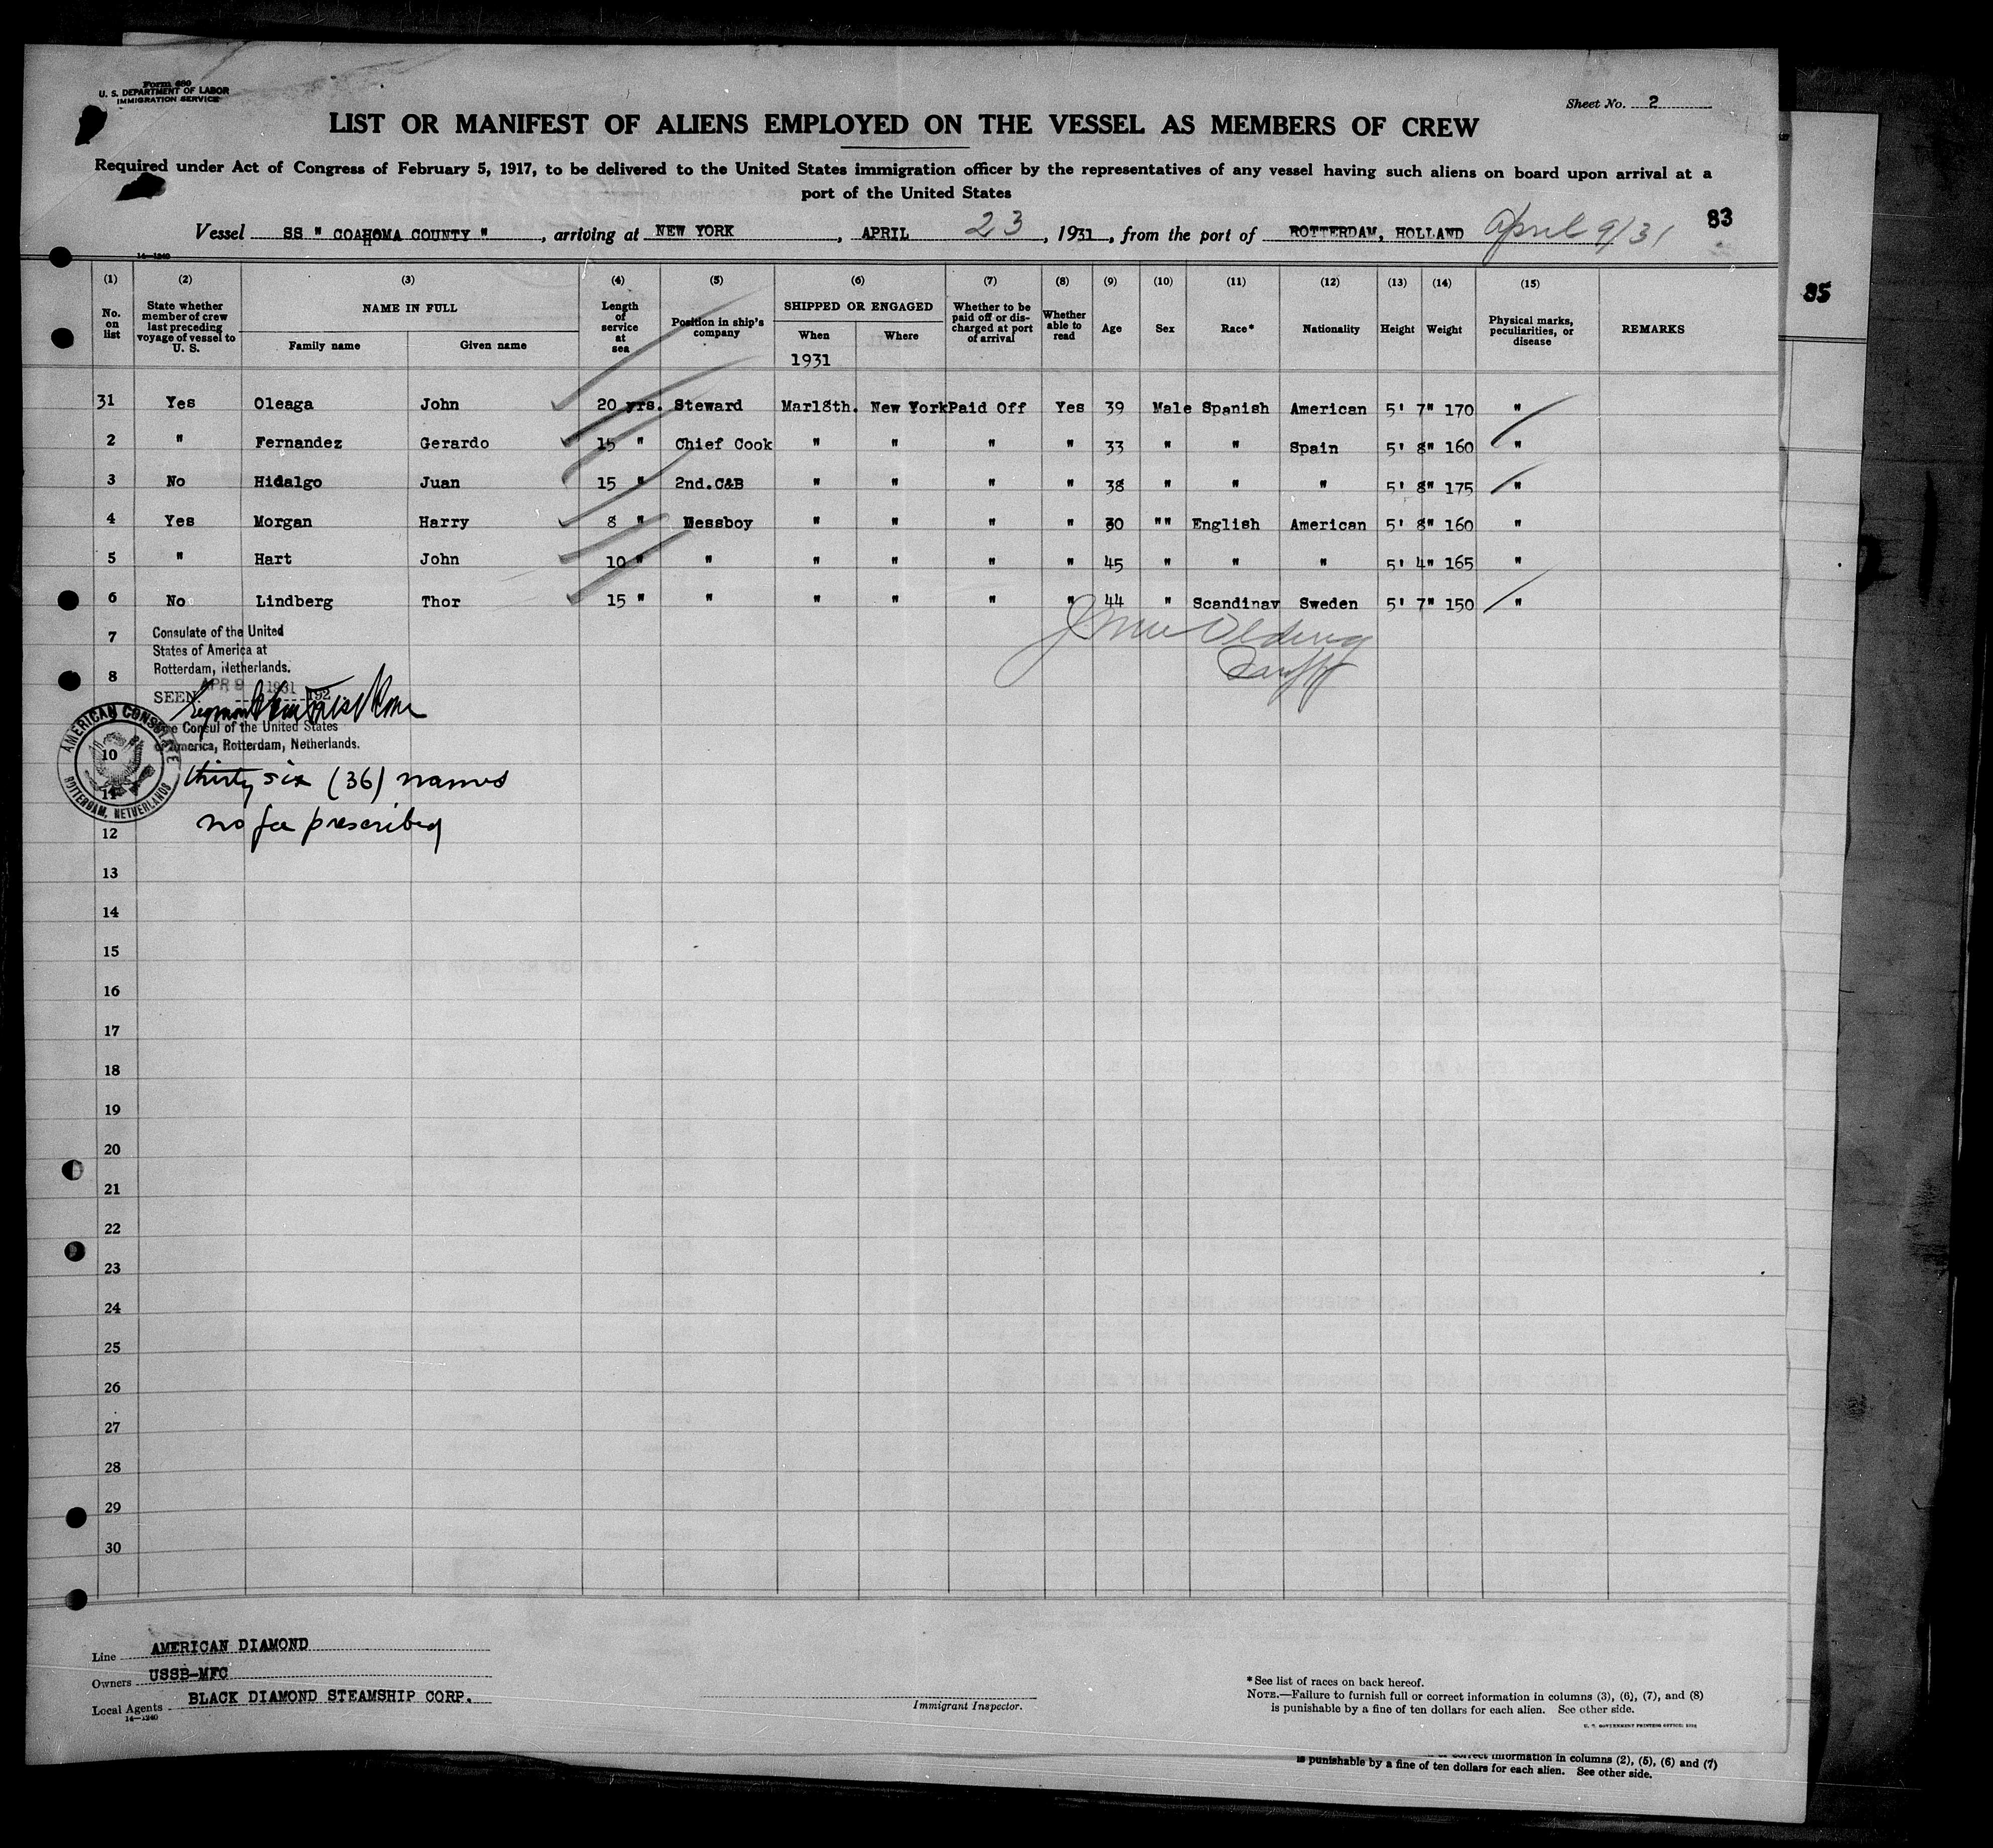 Form 680
U. S. DEPARTMENT OF LABOR
IMMIGRATION SERVICE
Sheet No. 2
LIST OR MANIFEST OF ALIENS EMPLOYED ON THE VESSEL AS MEMBERS OF CREW
Required under Act of Congress of February 5, 1917, to be delivered to the United States immigration officer by the representatives of any vessel having such aliens on board upon arrival at a
port of the United States
83
Vessel SS " COAHOMA COUNTY ", arriving at NEW YORK, APRIL 23, 1931, from the port of ROTTERDAM, HOLLAND April 9/31
14—1240
85
(1) (2) (3) (4) (5) (6) (7) (8) (9) (10) (11) (12) (13) (14) (15)
No. on list
State whether member of crew last preceding voyage of vessel to U. S.
NAME IN FULL
Family name
Given name
Length of service at sea
Position in ship's company
SHIPPED OR ENGAGED
When
Where
1931
Whether to be paid off or discharged at port of arrival
Whether able to read
Age
Sex
Race*
Nationality
Height
Weight
Physical marks, peculiarities, or disease
REMARKS
31 Yes Oleaga John 20 yrs. Steward Mar18th. New York Paid Off Yes 39 Male Spanish American 5' 7" 170 "
2 " Fernandez Gerardo 15 " Chief Cook " " " " 33 " " Spain 5' 8" 160 "
3 No Hidalgo Juan 15 " 2nd.C&B " " " " 38 " " " 5' 8" 175 "
4 Yes Morgan Harry 8 " Messboy " " " " 30 "" English American 5' 8" 160 "
5 " Hart John 10 " " " " " " 45 " " " 5' 4" 165 "
6 No Lindberg Thor 15 " " " " " " 44 " Scandinav Sweden 5' 7" 150 "
7
8
Consulate of the United
States of America at
Rotterdam, Netherlands.
SEEN APR 9 1931 192
Consul of the United States
of America, Rotterdam, Netherlands.
AMERICAN CONSULATE
ROTTERDAM, NETHERLANDS
10
11
thirty six (36) names
no fee prescribed
12
13
14
15
16
17
18
19
20
21
22
23
24
25
26
27
28
29
30
Line AMERICAN DIAMOND
Owners USSB-MFC
Local Agents BLACK DIAMOND STEAMSHIP CORP.
14—1240
Immigrant Inspector.
*See list of races on back hereof.
NOTE.—Failure to furnish full or correct information in columns (3), (6), (7), and (8)
is punishable by a fine of ten dollars for each alien. See other side.
correct information in columns (2), (5), (6) and (7)
is punishable by a fine of ten dollars for each alien. See other side.